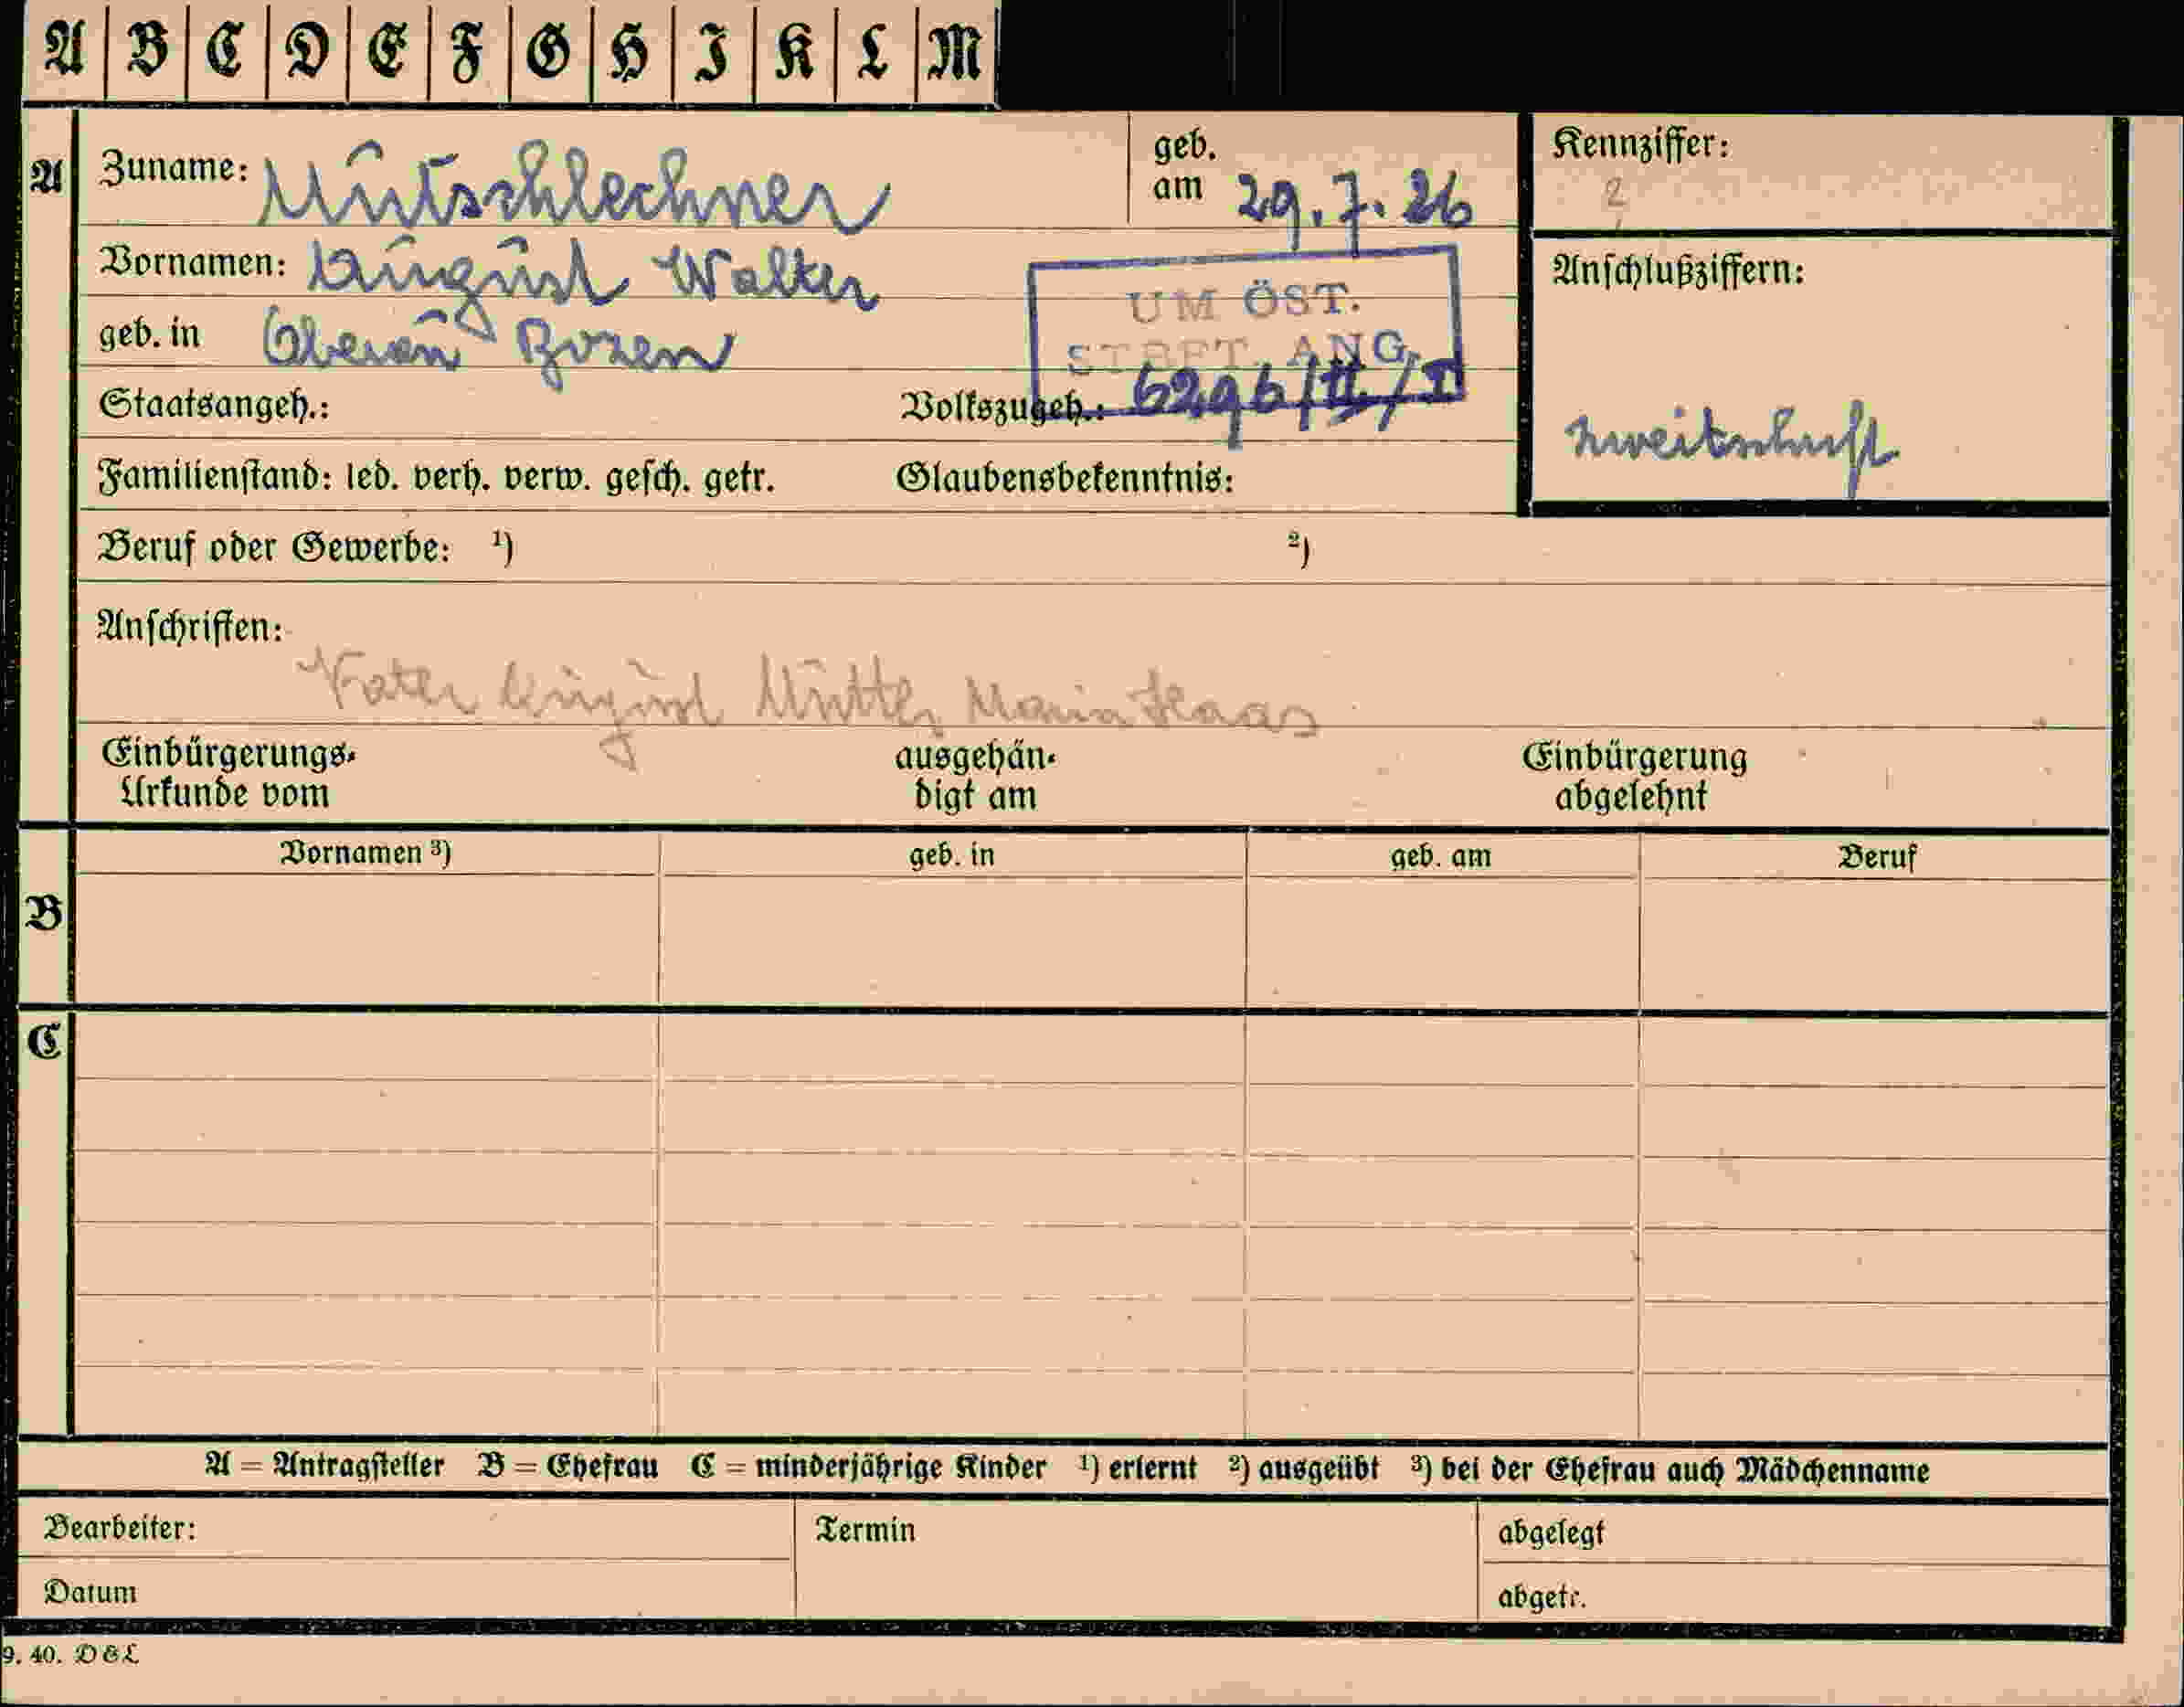 A B C D E F G H I K L M
A
Zuname: Mutschlechner
geb. am 29.7.26
Kennziffer:
2
Vornamen: August Walter
UM ÖST.
STBFT. ANG.
6296/II/I
Anschlußziffern:
Zweitschrift
geb. in Bozen
Staatsangeh.:
Volkszugeh.:
Familienstand: led. verh. verw. gesch. getr.
Glaubensbekenntnis:
Beruf oder Gewerbe: 1)
2)
Anschriften:
Vater August Mutter Maria Haas
Einbürgerungs-
Urkunde vom
ausgehän-
digt am
Einbürgerung
abgelehnt
B
Vornamen 3)
geb. in
geb. am
Beruf
C
A = Antragsteller B = Ehefrau C = minderjährige Kinder 1) erlernt 2) ausgeübt 3) bei der Ehefrau auch Mädchenname
Bearbeiter:
Termin
abgelegt
Datum
abgetr.
9. 40. D&L